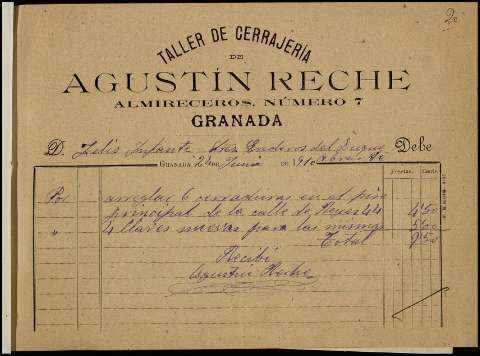 20
TALLER DE CERRAJERÍA
DE
AGUSTÍN RECHE
ALMIRECEROS, NÚMERO 7
GRANADA
D. Infante del Debe
GRANADA 2 DE Junio DE 1910
Pesetas. Cents.
Por arreglar 6 cerraduras en el piso
principal de la calle de Reyes 44 4'50
" 4 llaves nuevas para las mismas 5'00
Total 9'50
Recibí
Agustin Reche